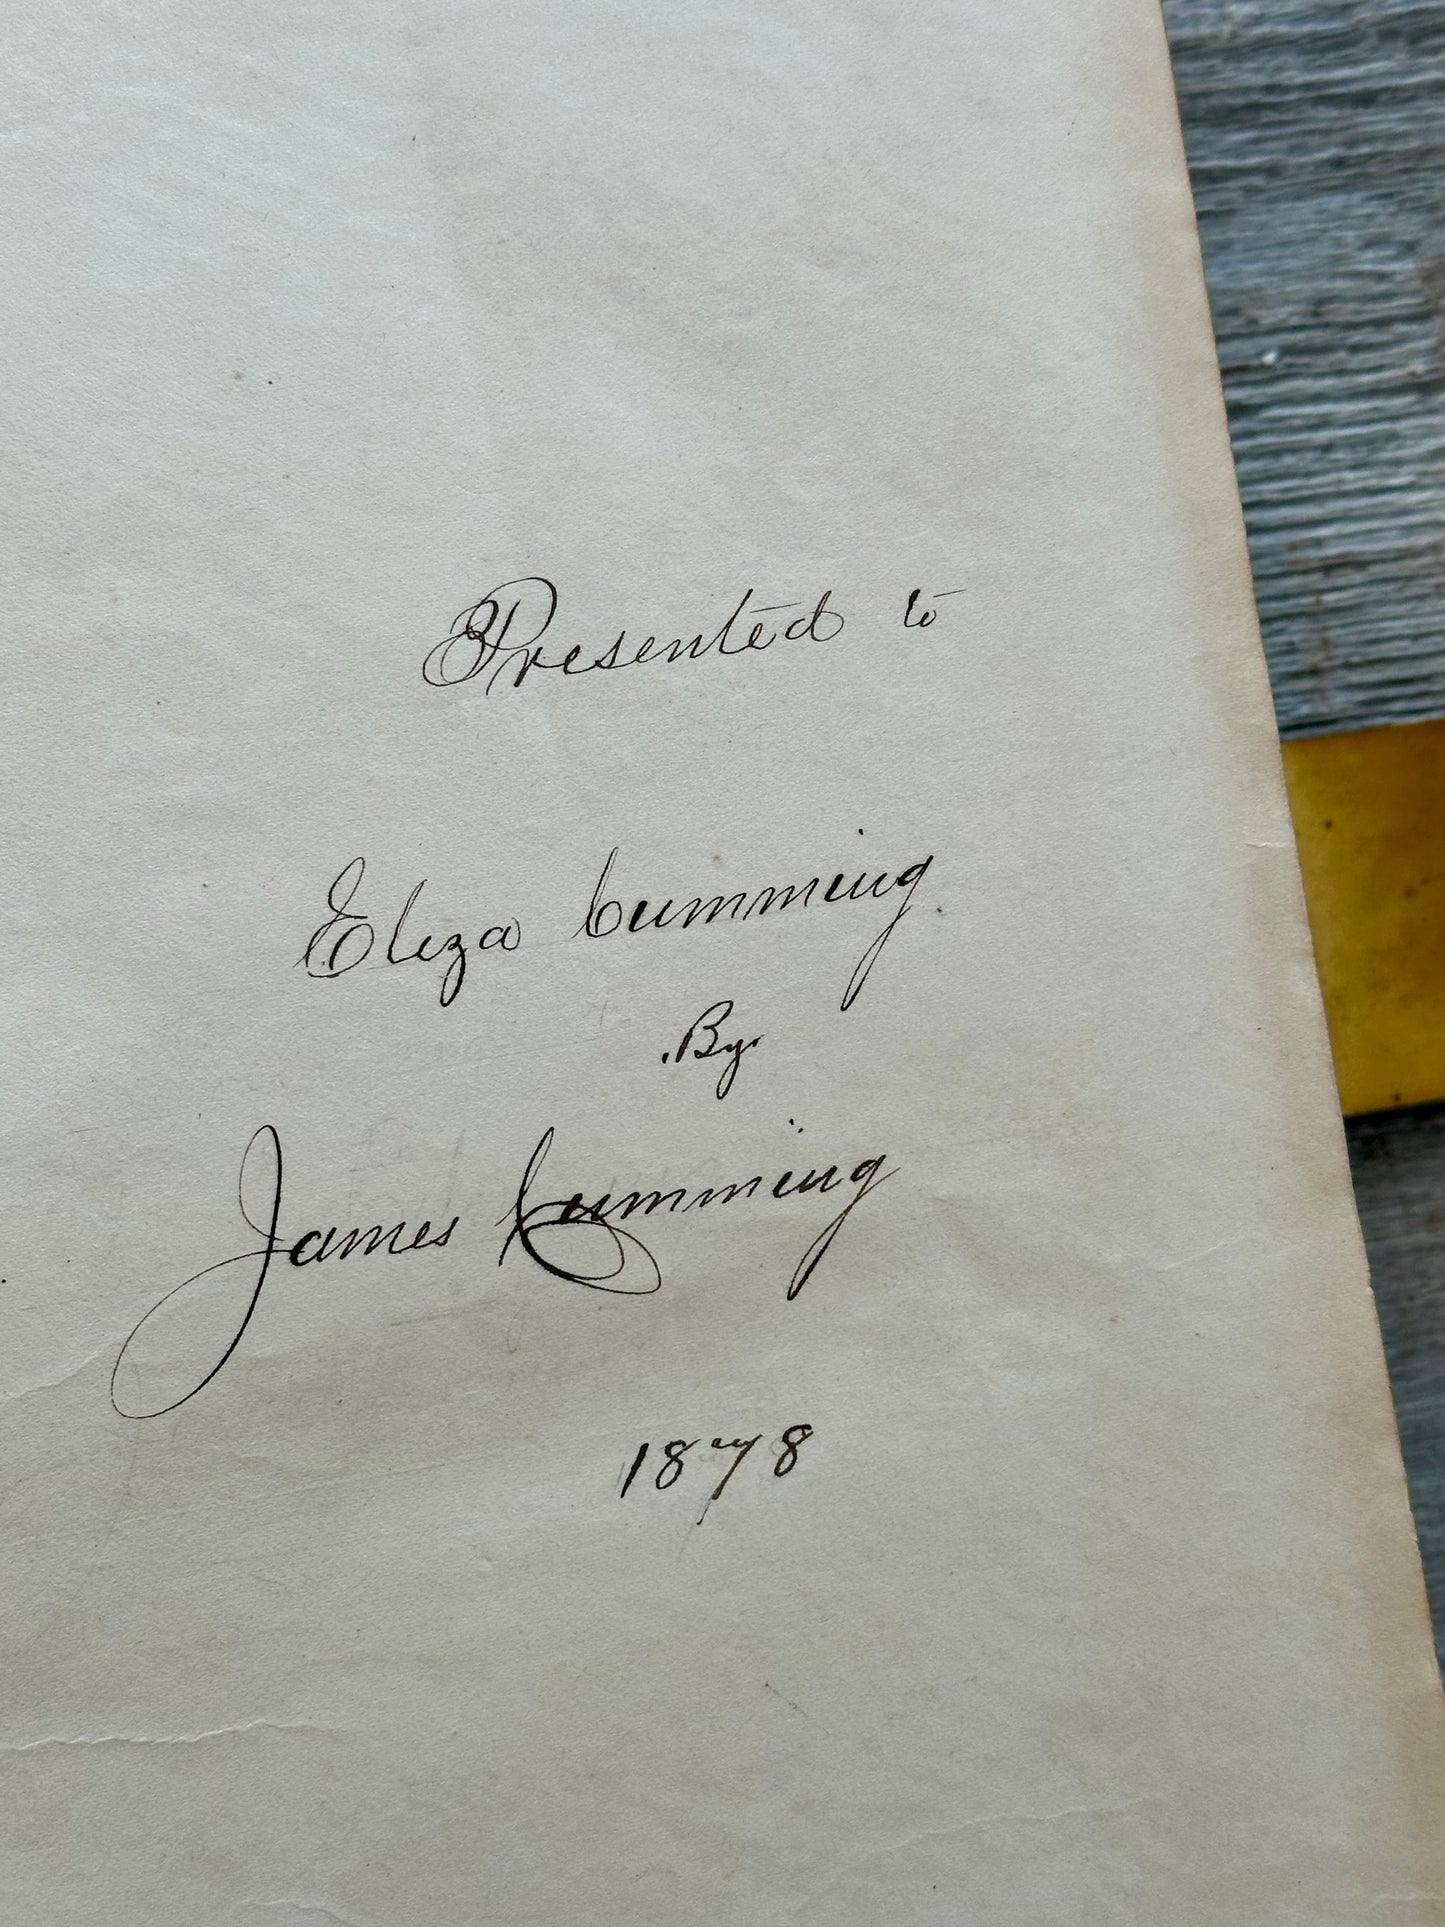 Presented to
Eliza Cumming
.By.
James Cumming
1878